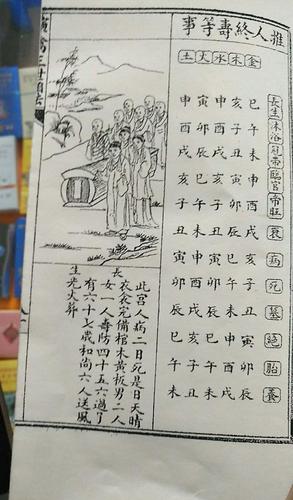 推人終壽等事
金木水火土
長生 沐浴 冠帶 臨官 帝旺 衰 病 死 墓 絕 胎 養
巳午未申酉戌亥子丑寅卯辰
亥子丑寅卯辰巳午未申酉戌
申酉戌亥子丑寅卯辰巳午未
寅卯辰巳午未申酉戌亥子丑
申酉戌亥子丑寅卯辰巳午未
長生
此宮人病二日死是日天晴
衣食完備棺木黃板男二人
女一人壽防四十五六過了
有六十七歲和尚六人送風
光火葬